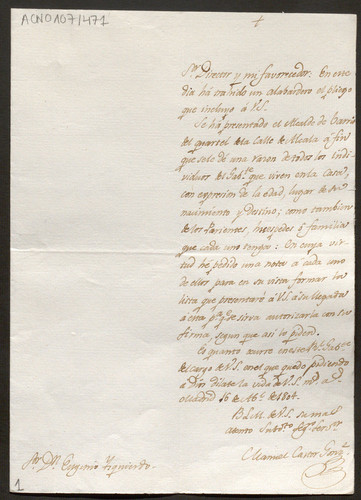 ACN0107/471
+
Sor. Director y mi favorecedor: En este
dia há trahido un alabardero el pliego
que incluyo á V.S.
Se há presentado el Alcalde de Barrio
del quartel de la Calle de Alcala á fin
que se le dé una razon de todos los indi
viduos del Gabte. que viven en la Casa,
con expresion de la edad, lugar de su
nacimiento y Destino; como tambien
de los Parientes, huespedes ó familia
que cada uno tenga: En cuya vir
tud hé pedido una nota á cada uno
de ellos para en su vista formar la
lista que presentaré á V.S. á su llegada
a esta pa. qe. se sirva autorizarla con su
firma, segun que asi lo piden.
Es quanto ocurre en este Rl. Gabte.
del cargo de V.S. en el que quedo pidiendo
á Dios dilate la vida de V.S. ms. as.
Madrid 16 de 1804.
B.L.M. de V.S. su mas
atento Segro. Seror.
Manuel Castor Gonz.
Sor. Dn. Eugenio Izquierdo.
1